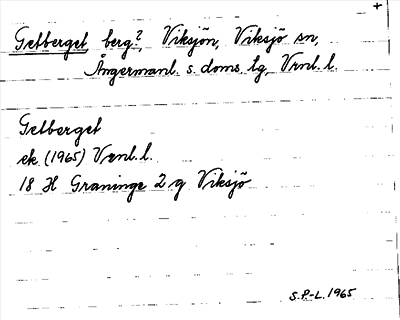 +
Getberget, berg?, Viksjön, Viksjö sn,
Ångermanl. s. doms. tg, Vrnl. l.
Getberget
ek (1965) Vrnl. l.
18 H Graninge 2 g Viksjö
S.P-L. 1965